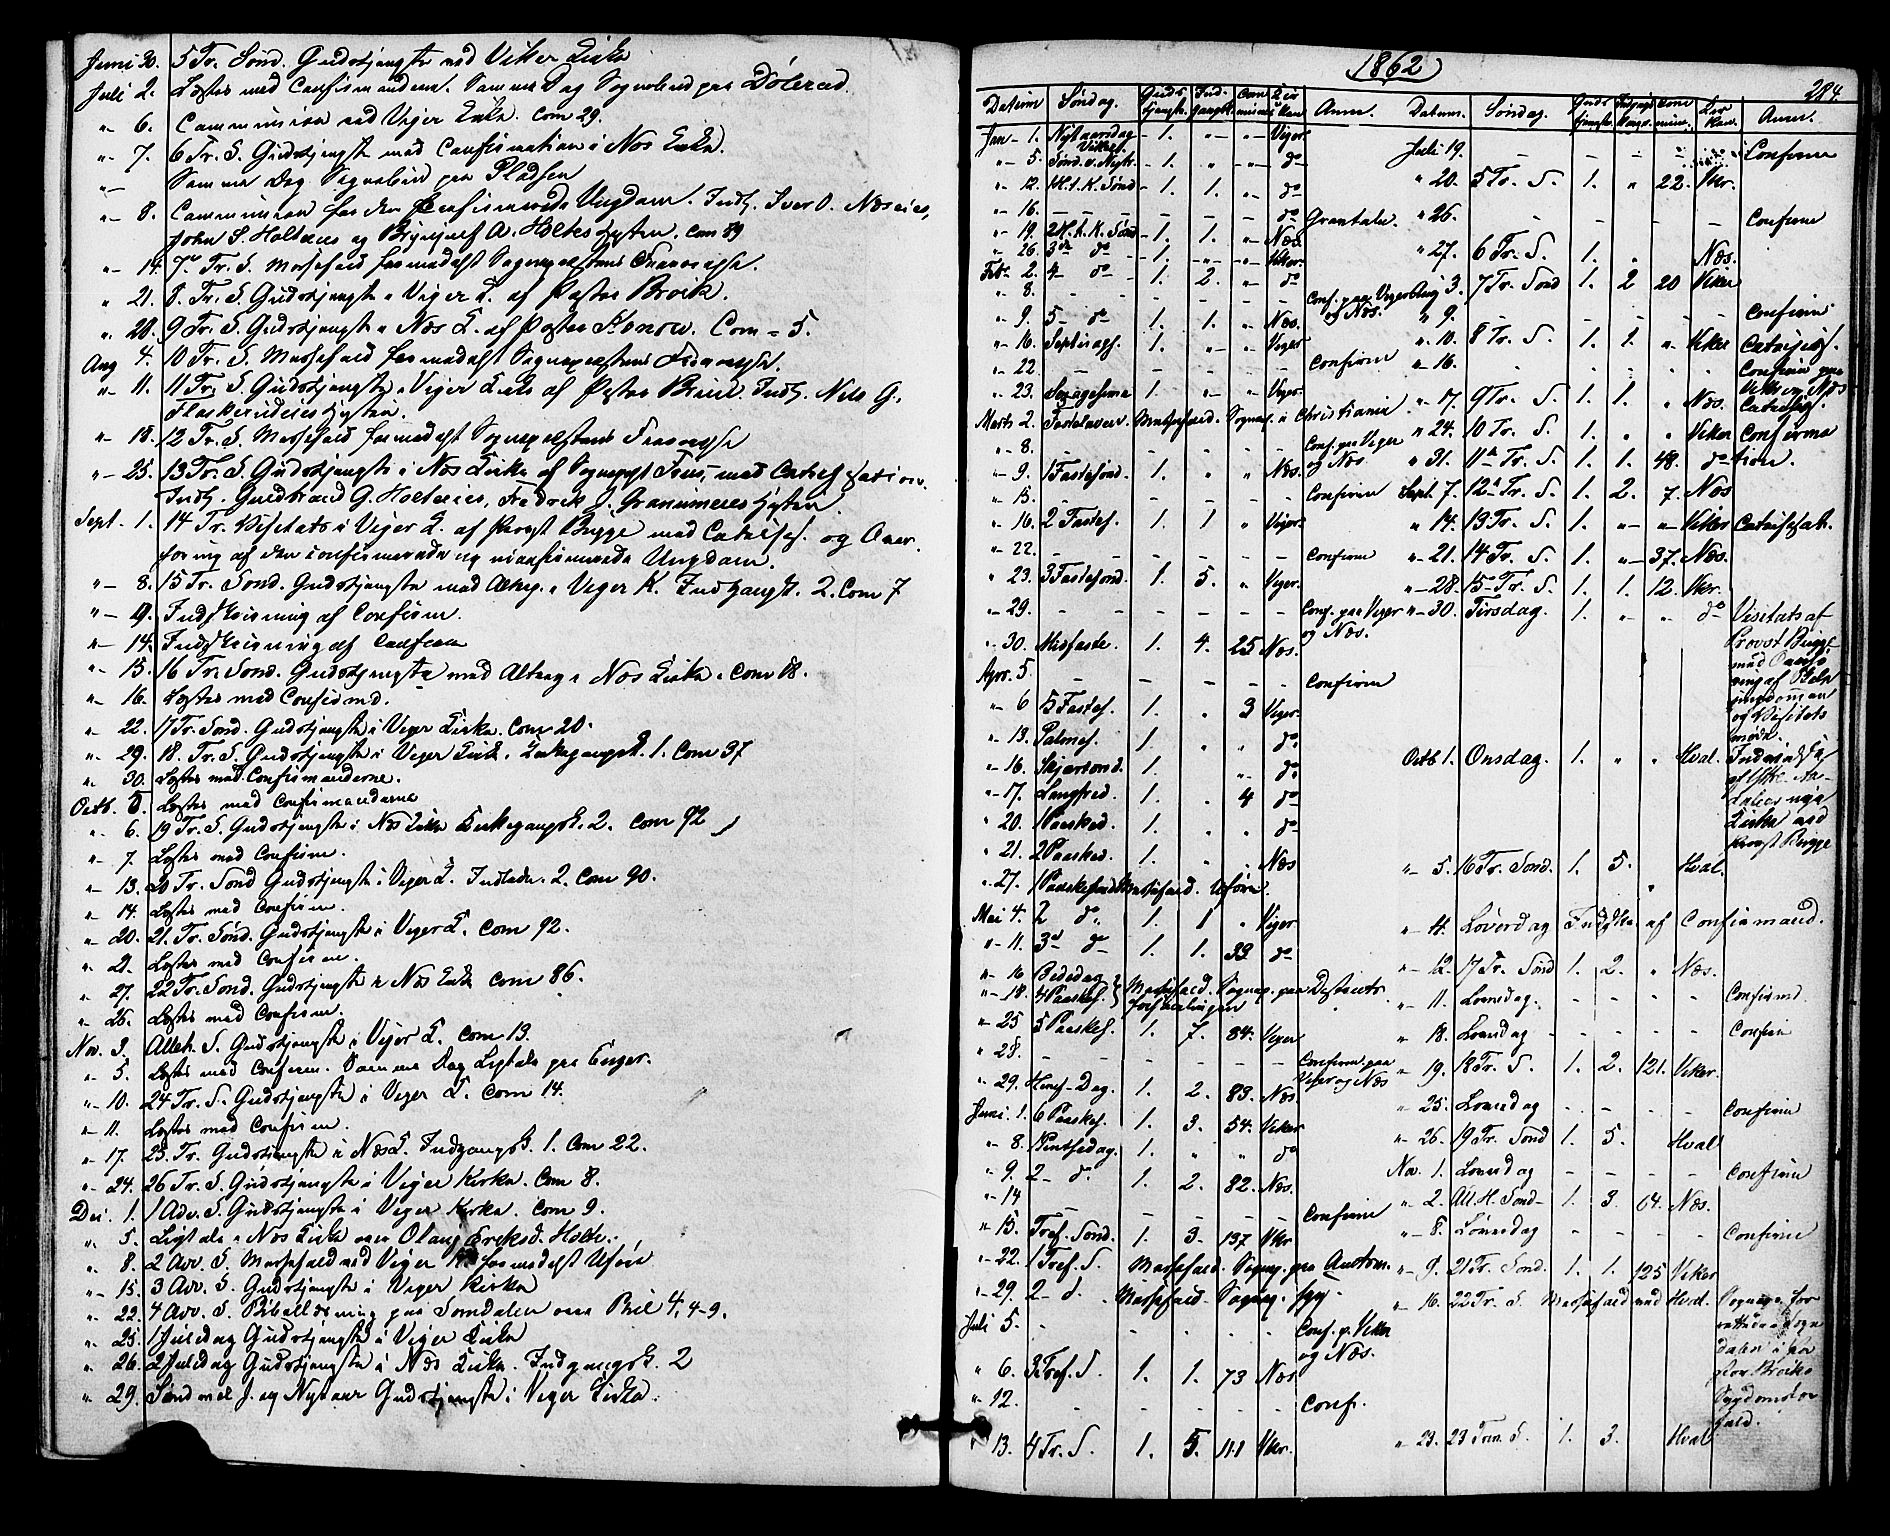 Juni 30. 5 Tr. Sønd. Gudstjeneste ved Viker Kirke
Juli 2. Læstes med Confirmanderne. Samme Dag Sognebud paa Dølerud
"- 6. Communion ved Viger Kirke. Com 29.
"- 7. 6 Tr. S. Gudstjeneste med Confirmation i Næs Kirke.
"- Samme Dag Sognebud paa Pladsen
"- 8. Communion for den confirmerede Ungdom. Indg. Iver O. Næseie,
John S. Holteeie og A. Holteshytten. Com 89
"- 14. 7de Tr. S. Messefald formedelst Sognepræstens Fraværelse.
" 21. 8. Tr. S. Gudstjeneste i Viger K. af Pastor Brock.
" 28. 9 Tr. S. Gudstjeneste i Næs K. af Pastor Konow. Com - 5.
Aug 4. 10 Tr. S. Messefald formedelst Sognepræstens Fravær.
"- 11. 11 Tr. S. Gudstjeneste i Viger Kirke af Pastor. Indg. Nils G.
"- 18. 12 Tr. S. Messefald formedelst Sognepræstens Fraværelse
"- 25. 13 Tr. S. Gudstjeneste i Næs Kirke af Sognepr., med Catechisation.
Indg. Guldbrand G. Holteeie, Fredrik J.
Sept. 1. 14 Tr. Visitats i Viger K. af Provst Bugge med Catechis. og Over-
høring af den confirmerede og uconfirmerede Ungdom.
"- 8. 15 Tr. Sønd. Gudstjeneste med Alterg. i Viger K. Indgangsk. 2. Com 7
"- 9. Indskrivning af Confirm.
"- 14. Indskrivning af Confirm
"- 15. 16 Tr. Sønd. Gudstjeneste med Alterg i Næs Kirke. Com 18.
"- 16. Læstes med Confirmd.
"- 22. 17 Tr. Sønd. Gudstjeneste i Viger Kirke. Com 20.
"- 29. 18. Tr. S. Gudstjeneste i Viger Kirke. Kirkegangsk. 1. Com 37
"- 30. Læstes med Confirmanderne.
Octb. 5. Læstes med Confirmanderne
"- 6. 19 Tr. S. Gudstjeneste i Næs Kirke Kirkegangsk. 2. Com 92
"- 7. Læstes med Confirm.
"- 13. 20 Tr. Sønd Gudstjeneste i Viger K. Indlede. 2. Com 90.
"- 14. Læstes med Confirm.
"- 20. 21. Tr. Sønd. Gudstjeneste i Viger K. Com 92.
"- 21. Læstes med Confirm.
"- 27. 22 Tr. Sønd. Gudstjeneste i Næs Kirke Com 86.
"- 26. Læstes med Confirm.
Nov. 3. Alleh. S. Gudstjeneste i Viger K. Com 13.
"- 5. Læstes med Confirm. Samme Dag Ligtale paa Enger.
"- 10. 24 Tr. S. Gudstjeneste i Viger K. Com 14.
"- 11. Læstes med Confirm.
"- 17. 25. Tr. Gudstjeneste i Næs K. Indgangsk. 1. Com 22.
"- 24. 26 Tr. S. Gudstjeneste i Viger Kirke. Com 8.
Dec. 1. 1 Adv. S. Gudstjeneste i Viger Kirke. Com 9.
" 5. Ligtale i Næs Kirke over Olaug Eriksd. Holte.
" 8. 2 Adv. S. Messefald ved Viger K formedelst Uføre
"- 15. 3 Adv. S. Gudstjeneste i Viger Kirke
" 22. 4 Adv. S. Bibellæsning paa Somdalen over Phil 4, 4-9.
" 25. 1 Juledag Gudstjeneste i Viger Kirke
" 26. 2 Juledag Gudstjeneste i Næs Kirke. Indgangsk. 2
" 29. Sønd mel. J. og Nytaar Gudstjeneste i Viger Kirke.
1862
284.
Datum Søndag. Guds tjenste. Ind- gangsk. Com munic. Kir ken Anm.
Jan - 1. Nytaarsdag - 1. "- "- Viger
"- 5. Sønd. e. Nyt. - 1. " "- do
"- 12. 1 H. t. K. Sønd - 1. 1. "- do
"- 16. - - - - do Grantale.
"- 19. 2 H. t. K. Sønd - 1. 1. "- Næs.
"- 26. 3de do - 1. "- "- Viker.
Feb. 2. 4- do - 1. 2. "- do
" 8. - - - - Conf. paa Viger og Næs.
" 9. 5- do 1. 1. "- Næs.
"- 16. Septuages. 1. "- "- Viger
"- 22. - - - - Confirm
"- 23. Sexagesima 1. "- "- Viger.
Marts 2. Fastelavn. Messefald. Sognep. i Christiania
"- 8. - - - - Conf. paa Viger og Næs
"- 9. 1 Fastesønd. 1. " " Næs.
"- 15. - - - - Confirm
"- 16. 2 Fastes. 1. 1 " Viger.
"- 22. - - - - Confirm
" 23. 3 Fastesønd. 1. 5. " Viger.
"- 29. - - - - Conf. paa Viger og Næs.
" 30. Midfaste 1. 4. 25 Næs.
Apr. 5 - - - - Confirm
"- 6 5 Fastes. 1. " 3 Viger.
"- 13. Palmes. 1. " " do
"- 16. Skjærtorsd. 1. "- do
"- 17. Langfred. 1. 4 do
" 20. 1 Paaskd. 1. " " do
"- 21. 2 Paaskd. 1. " " Næs
" 27. 1 Paaskesønd Messefald. Uføre.
Mai 4. 2 do. 1. 1 " Viger
"- 11. 3d do 1. 1. 39 do
"- 16 Bededag
"- 18. 4 Paaskes. } Messefald. Sognep. paa Districts- forhandlinger
"- 25 5 Paaskes. 1. 7. 84. Viger
" 28. - - - - Confirm. paa Viger og Næs
"- 29. Himf. Dag. 1. 2. 83. Næs
Juni. 1. 6 Paaskes. 1. 3. 54. Viker
"- 8. 1 Pintsedag 1. " " do
" 9. 2- do. 1. 2. 82. Næs.
"- 14 - - - - Confirm
" 15. Tref. Sønd. 1. 3. 137 Vkr
"- 22. 1 Tref. S. Messefald. Sognep. paa Amtsm.
"- 29. 2- d. Messefald. Sognep. syg.
Juli 5. - - - - Conf. p. Viker og Næs.
" 6. 3 Tref. S. 1. 1. 73 Næs
" 12. - - - - Conf.
" 13. 4 Tr. S. 1. 5. 111 Vkr.
Datum. Søndag. Guds tjenste. Indgangs kone. Com mun. Kir ken. Anm.
Juli 19. - - - - Confirm
" 20. 5 Tr. S. 1. " 22. Vkr.
" 26. - - - - Confirm
" 27. 6 Tr. S. 1. " Næs.
Aug 3. 7 Tr. Sønd 1. 2 20 Viker
" 9. - - - - Confirm
"- 10. 8 Tr. S. 1. 1. "- Viker Catechis.
"- 16. - - - - Confirm paa Viker og Næs
"- 17. 9 Tr. S. 1. 1. " Næs. Catechis.
"- 24. 10 Tr. S. 1. " " Viker Confirma
"- 31. 11te Tr. S. 1. 1. 48. do tion.
Sept. 7. 12te Tr. S. 1. 2. 7. Næs
"- 14. 13 Tr. S. 1. "- "- Viker Catechisat.
"- 21. 14 Tr. S. 1. "- 37. Næs.
"- 28. 15 Tr. S. 1. 1. 12. Vkr.
"- 30. Tirsdag. 1. " " do Visitats af Provst Bugge med og Visitats møde.
Octb 1. Onsdag. 1. " " Hval. Indvielse af Ytre Aa- dalens nye Kirke ved Provst Bugge
"- 5. 16 Tr. Sønd. 1. 5. " Hval.
"- 4. Løverdag Indskr. af Confirmand.
"- 12. 17 Tr. Sønd 1. 2. " Næs.
"- 11. Løverdag. - - - - Confirmd.
"- 18. Løverdag - - - - Confirm
"- 19. 18 Tr. S. 1. 2. 121. Viker.
"- 25. Løverdag - - - - Confirm
"- 26. 19 Tr. Sønd 1. 5. Hval
Nov. 1. Løverdag - - - - Confirm
"- 2. All. H. Sønd- 1. 3. 64. Næs.
"- 8. Løverdag - - - - Confirm
"- 9. 21 Tr. Sønd. 1. 1. 125 Viker
"- 16. 22 Tr. S. Messefald ved Hval. Sognepr. for rettede i Sogne dalen i Pa stor Brocks Sygdomsfor fald.
"- 23. 23 Trin. S. 1. 3. Hval